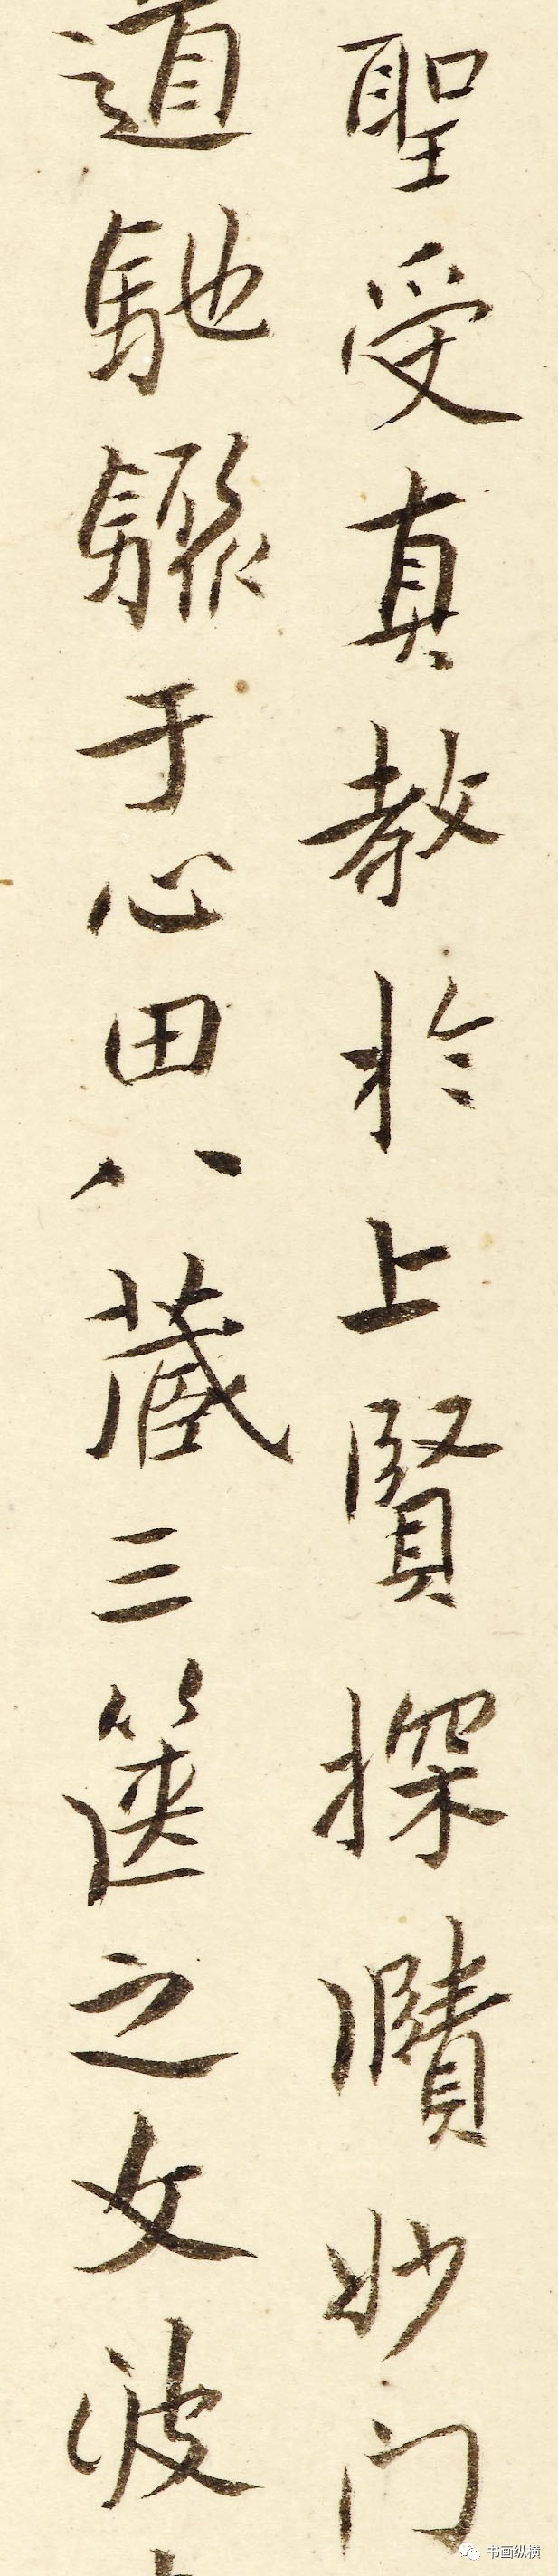 聖受真教於上賢探賾妙門
道馳驟于心田八藏三篋之文波
书画纵横